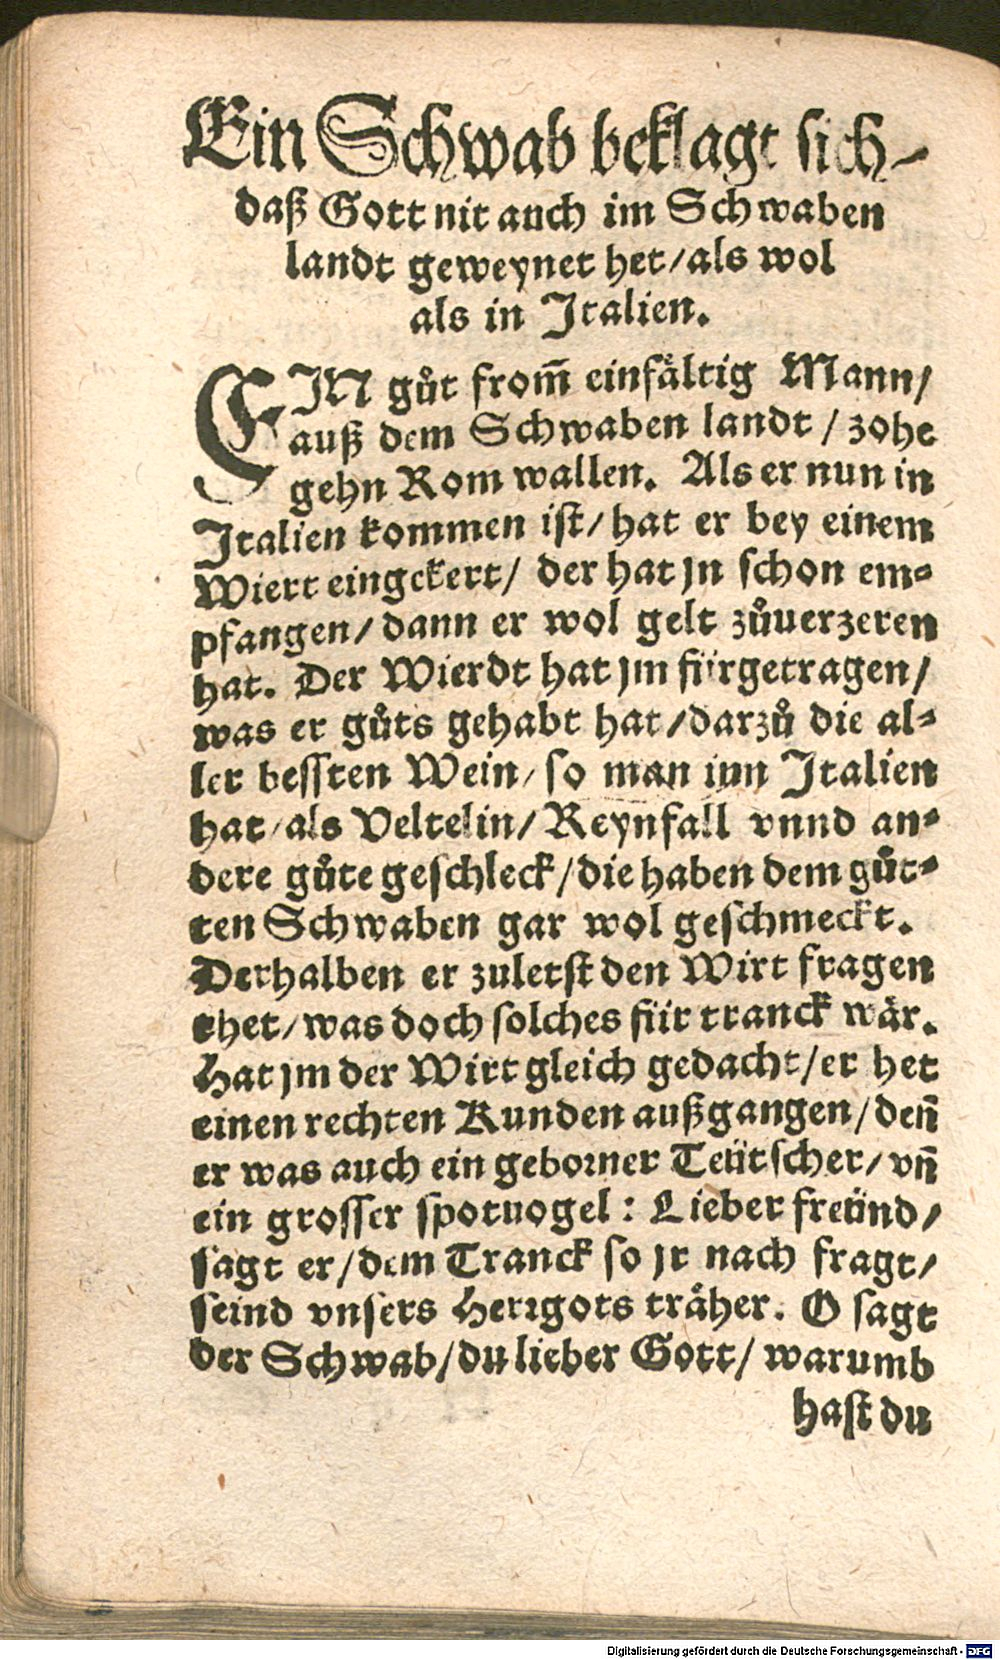 Ein Schwab beklagt sich/
daß Gott nit auch im Schwaben
landt geweynet het/als wol
als in Italien.
EIN gůt from̄ einfåltig Mann/
auß dem Schwaben landt/zohe
gehn Rom wallen. Als er nun in
Italien kommen ist/hat er bey einem
Wiert eingekert/ der hat jn schon em⸗
pfangen/dann er wol gelt zůuerzeren
hat. Der Wierdt hat jm fürgetragen/
was er gůts gehabt hat/darzů die al⸗
ler bessten Wein/so man inn Italien
hat/als Veltelin/Reynfall vnnd an⸗
dere gůte geschleck/die haben dem gůt⸗
ten Schwaben gar wol geschmeckt.
Derhalben er zuletst den Wirt fragen
thet/was doch solches für tranck wår.
Hat jm der Wirt gleich gedacht/er het
einen rechten Kunden außgangen/den̄
er was auch ein geborner Teütscher/vn̄
ein grosser spotuogel: Lieber freünd/
sagt er/dem Tranck so jr nach fragt/
seind vnsers Herrgots tråher. O sagt
der Schwab/du lieber Gott/warumb
hast du
Digitalisierung gefördert durch die Deutsche Forschungsgemeinschaft - DFG